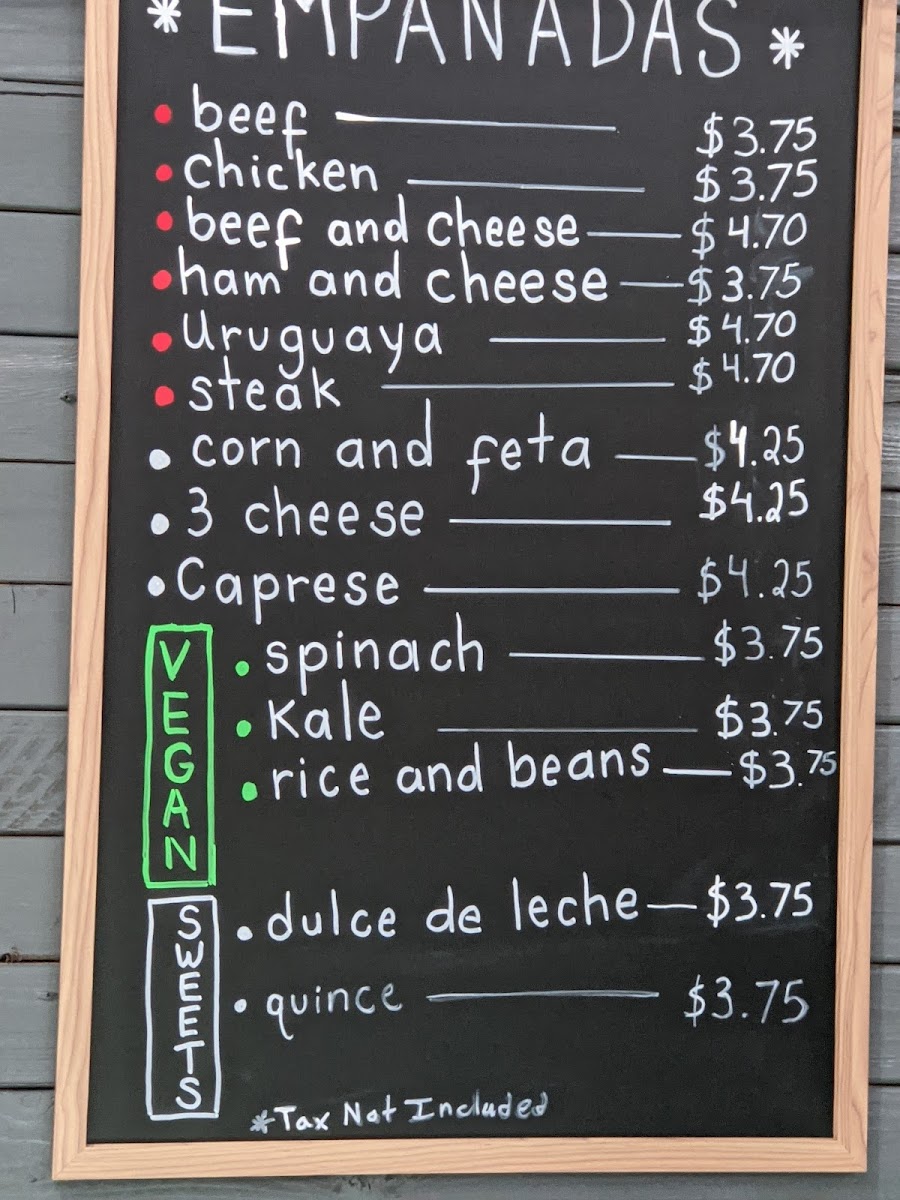 * EMPANADAS *
• beef $3.75
• chicken $3.75
• beef and cheese $4.70
• ham and cheese $3.75
• Uruguaya $4.70
• steak $4.70
• corn and feta $4.25
• 3 cheese $4.25
• Caprese $4.25
VEGAN
• spinach $3.75
• Kale $3.75
• rice and beans $3.75
SWEETS
• dulce de leche $3.75
• quince $3.75
*Tax Not Included